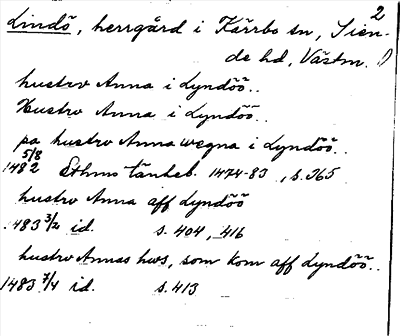 2
Lindö, herrgård i Kärrbo sn, Sien-
de hd, Västm. 1)
hustrv Anna i Lyndöö..
Hustrv Anna i Lyndöö..
pa hustrv Anna wegna i Lyndöö..
5/8
1482 Sthms tänkeb. 1474-83, s. 365
hustrv Anna aff Lyndöö
1483 3/2 id. s. 404, 416
hustrv Annas hws, som kom aff Lyndöö..
1483 7/4 id. s. 413